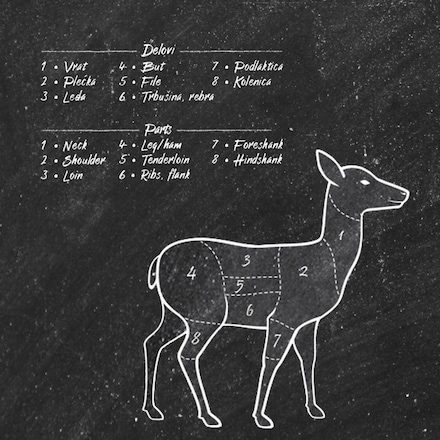 Delovi
1 • Vrat 4 • But 7 • Podlaktica
2 • Plećka 5 • File 8 • Kolenica
3 • Leđa 6 • Trbušina, rebra
Parts
1 • Neck 4 • Leg/ham 7 • Foreshank
2 • Shoulder 5 • Tenderloin 8 • Hindshank
3 • Loin 6 • Ribs, flank
1
3
4
2
5
6
8
7